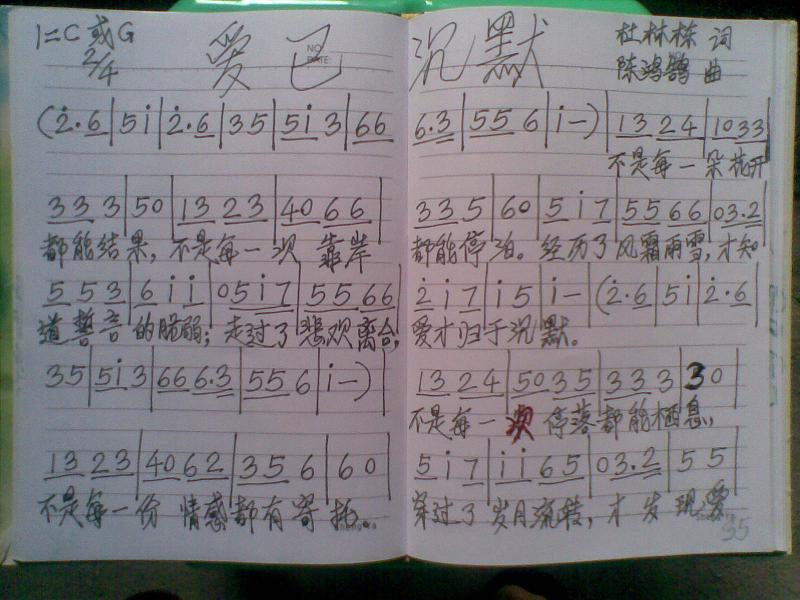 1=C或G 爱已沉默 杜林栋 词
2/4 NO. DATE: 陈鸿鹄 曲
(2̇.6|5i̇|2̇.6|35|5i̇3|66|6.3|556|i̇-)|1324|1033|
不是每一朵花开
333|50|1323|4066|335|60|5i̇7|5566|03.2|
都能结果,不是每一次 靠岸 都能停泊。经历了风霜雨雪,才知
553|6i̇i̇|05i̇7|55.66|2̇i̇7|i̇5|i̇-|(2̇.6|5i̇|2̇.6|
道誓言的脆弱;走过了悲欢离合,爱才归于沉默。
35|5i̇3|666.3|556|i̇-)|1324|5035|333|30|
不是每一次 停落都能栖息,
1323|4062|356|60|5i̇7|i̇i̇65|03.2|55|
不是每一份 情感都有寄托。穿过了岁月流转,才发现爱
35